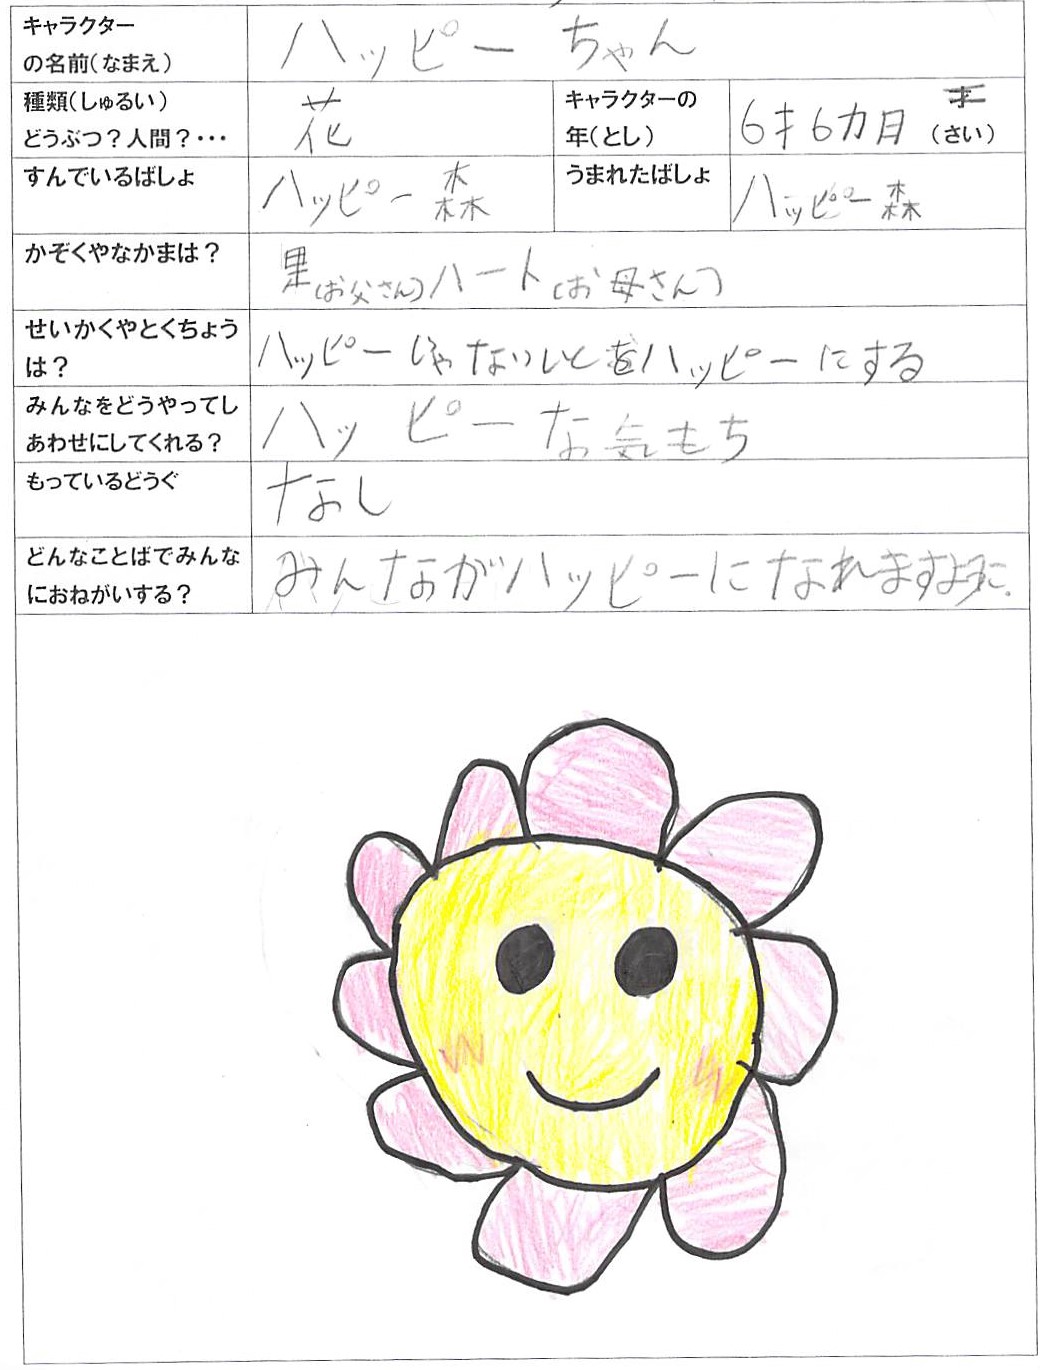 キャラクター
の名前(なまえ)
ハッピーちゃん
種類(しゅるい)
どうぶつ？人間？・・・
花
キャラクターの
年(とし)
6才6カ月
(さい)
すんでいるばしょ
ハッピー森
うまれたばしょ
ハッピー森
かぞくやなかまは？
果(お父さん)ハート(お母さん)
せいかくやとくちょう
は？
ハッピーじゃないひとをハッピーにする
みんなをどうやってし
あわせにしてくれる？
ハッピーな気もち
もっているどうぐ
なし
どんなことばでみんな
におねがいする？
みんながハッピーになれますように.